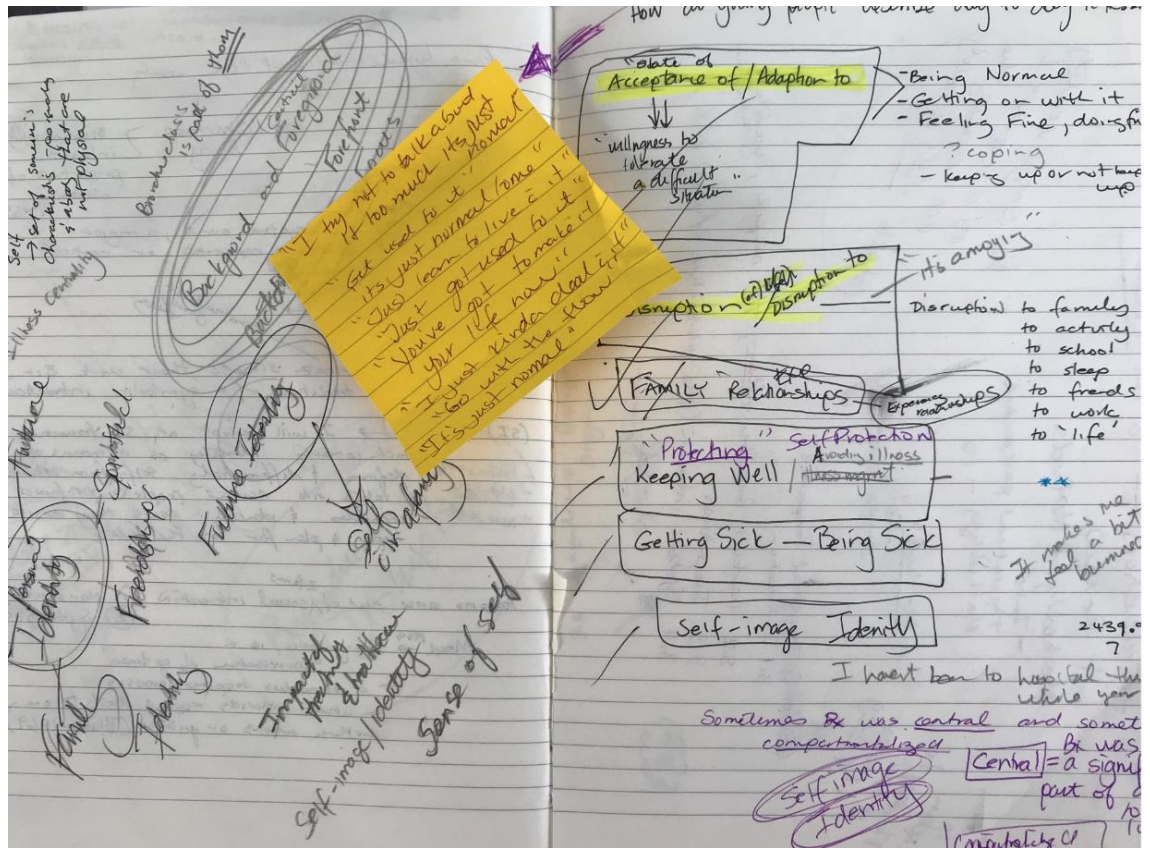 Self
→ set of someone's
characteristics - possibly
& about that are
not physical
Illness Centrality
Bronchiectasis
is part of them
Background and Foreground
Critical
Forefront
Focus
Future Identity
Self
(in a family)
Personal
Identity
Friendships
Family
Identity
Impact of
Self-image/Identity
Sense of self
"I try not to talk about
it too much its just
normal
"Get used to it"
its just normal
"Just learn to live c̄ it"
"Just got used to it"
"You've got to make it
your life now"
"I just kinda deal c̄ it"
"Go with the flow"
"It's just normal"
How do young people describe day to day
"State of
Acceptance of / Adaption to
"willingness to
tolerate
a difficult
situation"
-Being Normal
- Getting on with it
- Feeling Fine, doing
? coping
- keeping up or not keep
up
Disruption (of)
/ Disruption to
"it's annoying"
Disruption to family
to activity
to school
to sleep
to friends
to work
to 'life'
FAMILY Relationships
Experiences
relationships
"Protecting" Self Protection
Keeping Well / Avoiding illness
illness mgmt
**
Getting Sick — Being Sick
It makes me
feel a bit
Self-image Idenity
2439.
7
I havent been to hospital
whole year
Sometimes Bx was central and
compartmentalized
Self image
Identity
Bx was
Central = a
part of